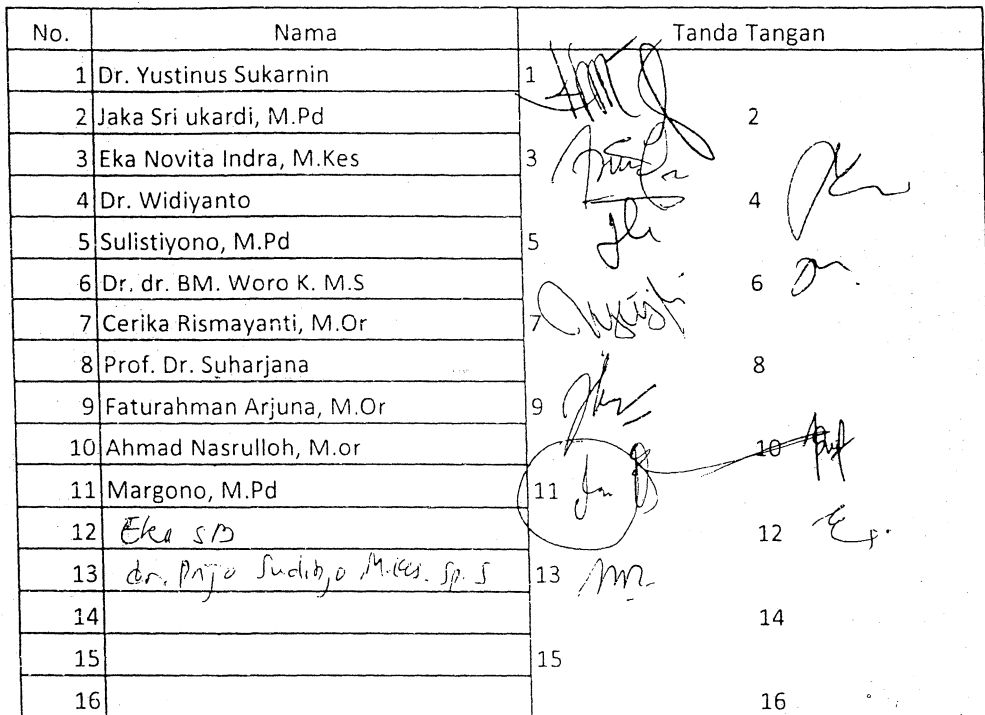 No. Nama Tanda Tangan
1 Dr. Yustinus Sukarnin 1
2 Jaka Sri ukardi, M.Pd 2
3 Eka Novita Indra, M.Kes 3
4 Dr. Widiyanto 4
5 Sulistiyono, M.Pd 5
6 Dr. dr. BM. Woro K. M.S 6
7 Cerika Rismayanti, M.Or 7
8 Prof. Dr. Suharjana 8
9 Faturahman Arjuna, M.Or 9
10 Ahmad Nasrulloh, M.or 10
11 Margono, M.Pd 11
12 Eka SB 12
13 dr. Prijo Sudibjo M.Kes. Sp. S 13
14 14
15 15
16 16